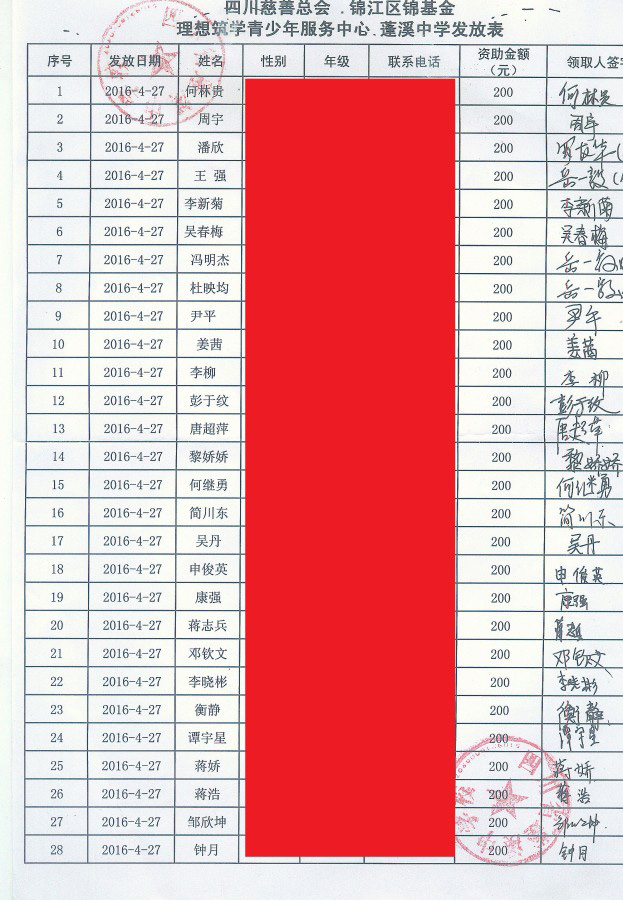 四川慈善总会．锦江区锦基金
理想筑学青少年服务中心．蓬溪中学发放表
序号 发放日期 姓名 性别 年级 联系电话 资助金额（元） 领取人签字
1 2016-4-27 何林贵 200 何林贵
2 2016-4-27 周宇 200 周宇
3 2016-4-27 潘欣 200
4 2016-4-27 王 强 200 岳一毅
5 2016-4-27 李新菊 200 李新菊
6 2016-4-27 吴春梅 200 吴春梅
7 2016-4-27 冯明杰 200 岳一毅
8 2016-4-27 杜映均 200 岳一毅
9 2016-4-27 尹平 200 尹平
10 2016-4-27 姜茜 200 姜茜
11 2016-4-27 李柳 200 李柳
12 2016-4-27 彭于纹 200 彭于纹
13 2016-4-27 唐超萍 200 唐超萍
14 2016-4-27 黎娇娇 200 黎娇娇
15 2016-4-27 何继勇 200 何继勇
16 2016-4-27 简川东 200 简川东
17 2016-4-27 吴丹 200 吴丹
18 2016-4-27 申俊英 200 申俊英
19 2016-4-27 康强 200 康强
20 2016-4-27 蒋志兵 200
21 2016-4-27 邓钦文 200 邓钦文
22 2016-4-27 李晓彬 200 李晓彬
23 2016-4-27 衡静 200 衡静
24 2016-4-27 谭宇星 200 谭宇星
25 2016-4-27 蒋娇 200 蒋娇
26 2016-4-27 蒋浩 200 蒋浩
27 2016-4-27 邹欣坤 200
28 2016-4-27 钟月 200 钟月